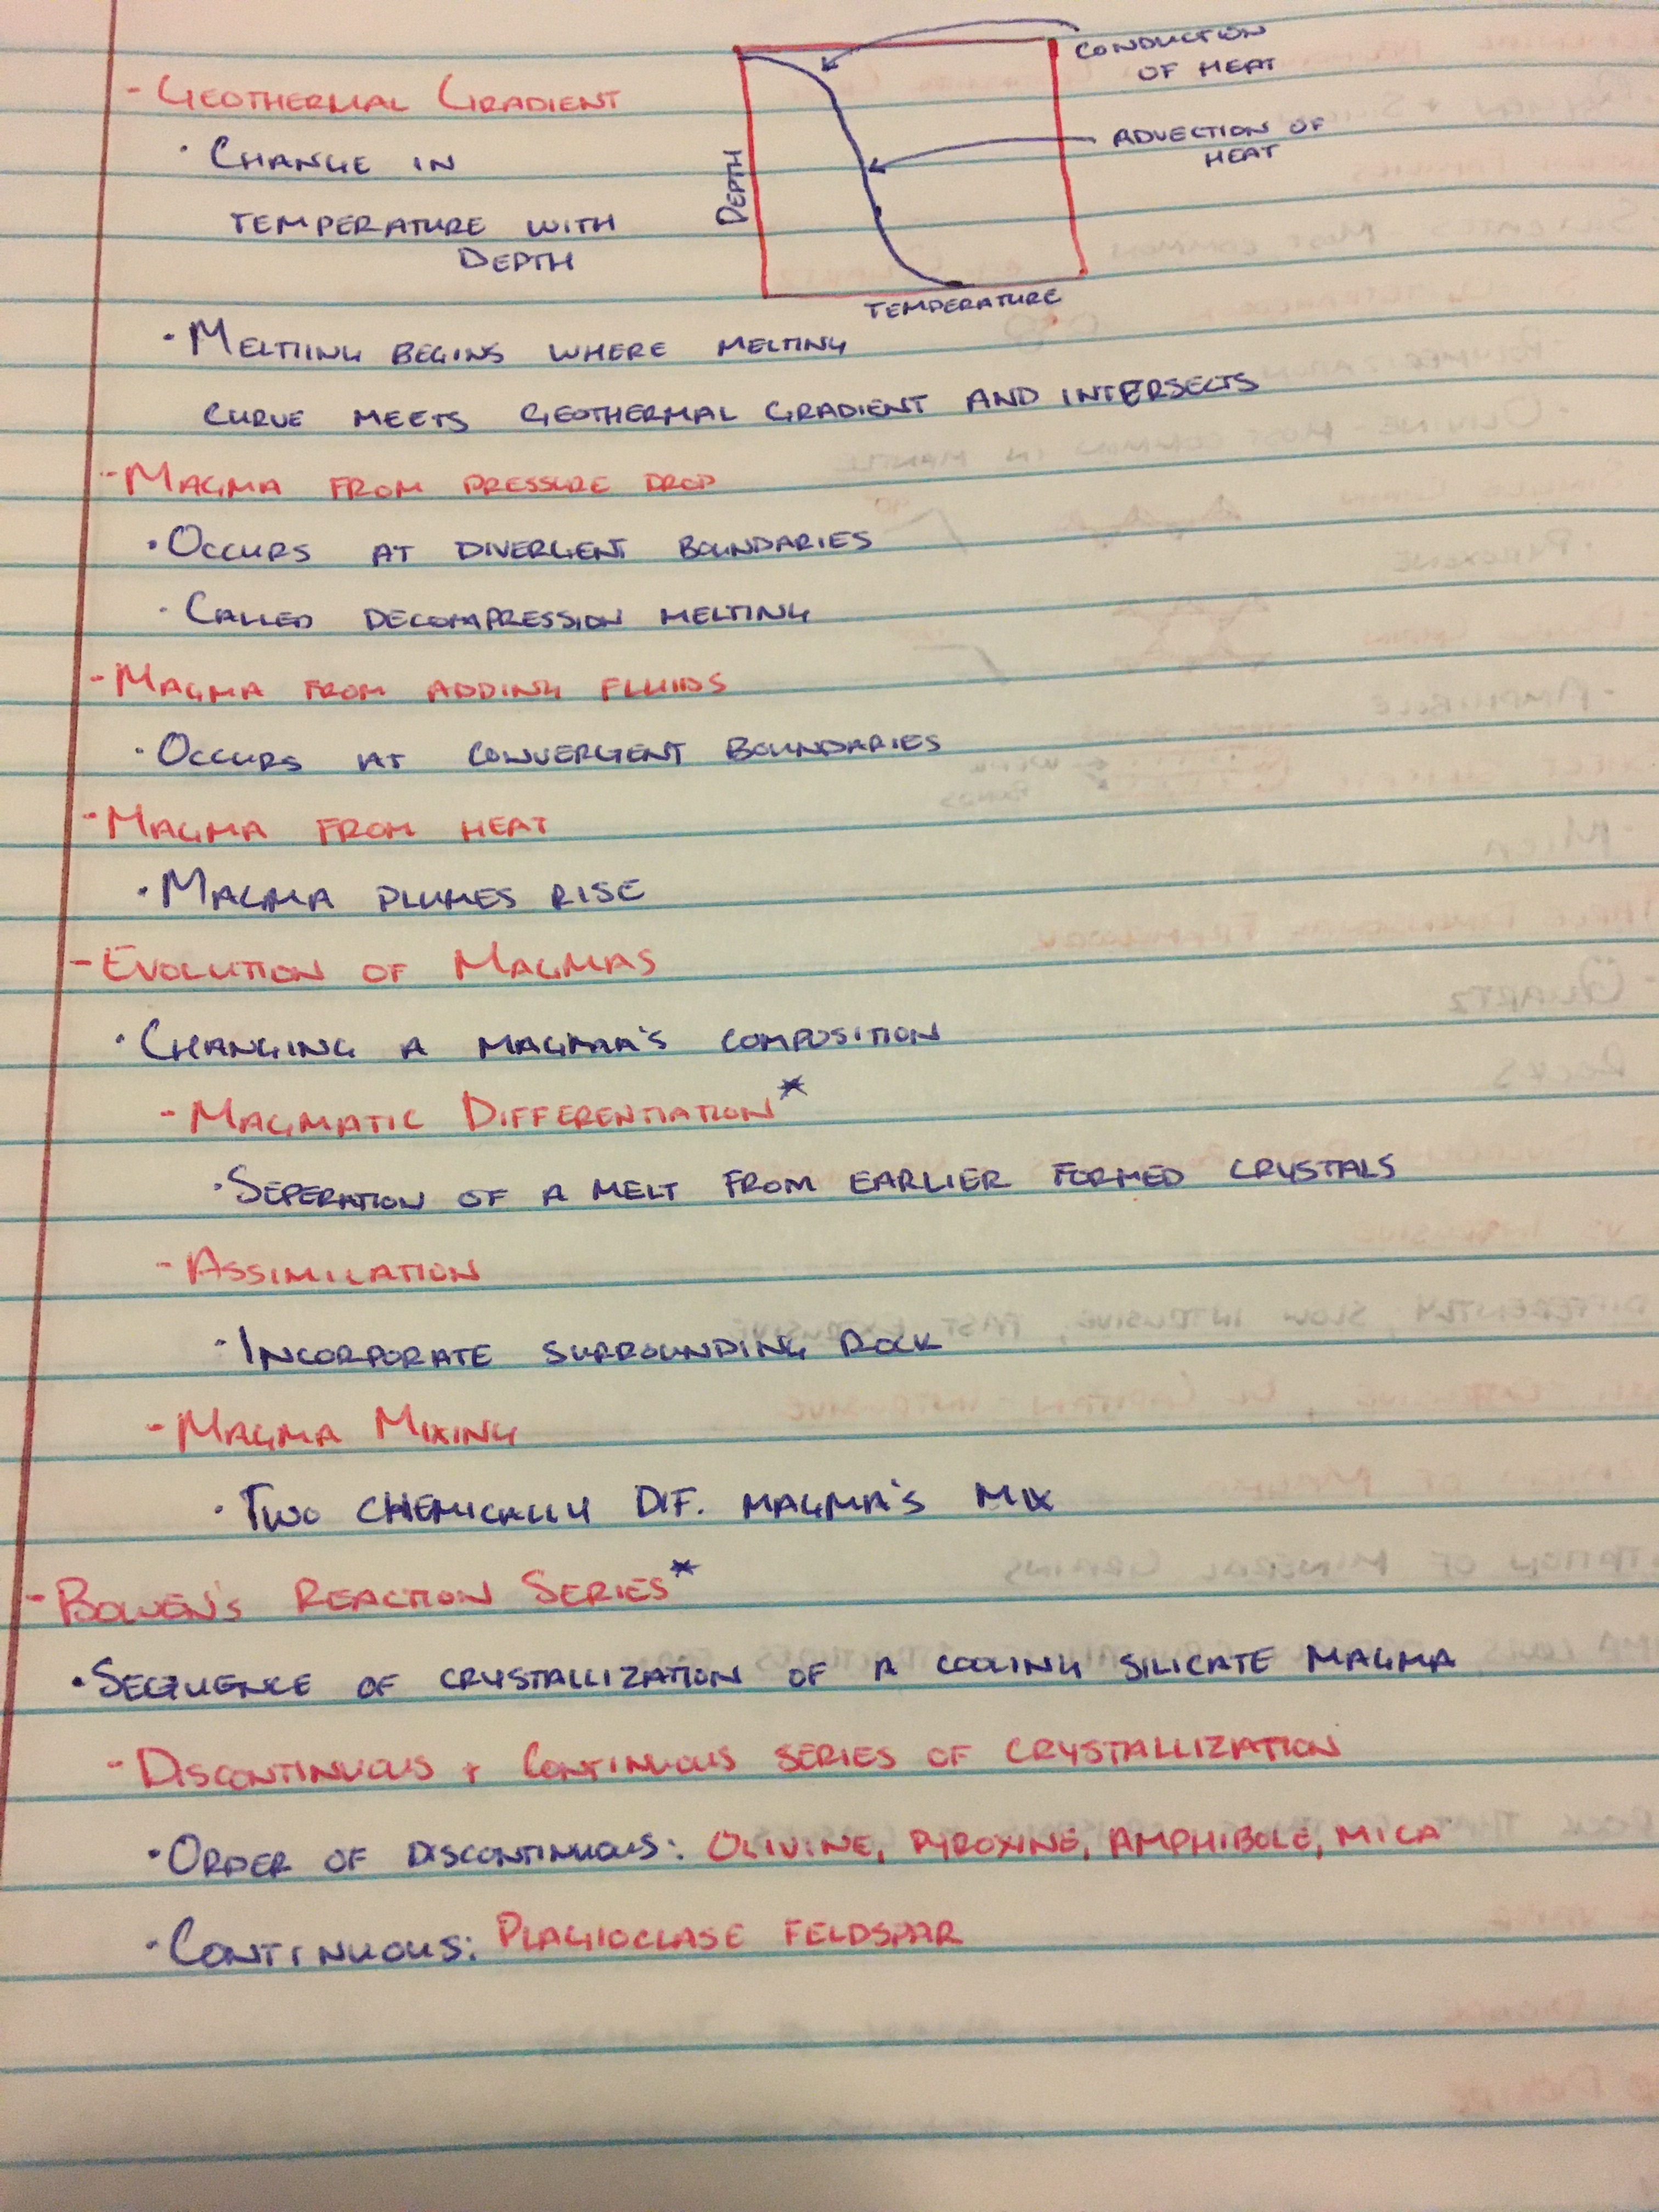 - GEOTHERMAL GRADIENT
· CHANGE IN
TEMPERATURE WITH
DEPTH
CONDUCTION
OF HEAT
ADVECTION OF
HEAT
DEPTH
TEMPERATURE
· MELTIING BEGINS WHERE MELTING
CURVE MEETS GEOTHERMAL GRADIENT AND INTERSECTS
- MAGMA FROM PRESSURE DROP
· OCCURS AT DIVERGENT BOUNDARIES
· CALLED DECOMPRESSION MELTING
- MAGMA FROM ADDING FLUIDS
· OCCURS AT CONVERGENT BOUNDARIES
- MAGMA FROM HEAT
· MAGMA PLUMES RISE
- EVOLUTION OF MAGMAS
· CHANGING A MAGMA'S COMPOSITION
- MAGMATIC DIFFERENTIATION*
· SEPERATION OF A MELT FROM EARLIER FORMED CRYSTALS
- ASSIMILATION
· INCORPORATE SURROUNDING ROCK
- MAGMA MIXING
· TWO CHEMICALLY DIF. MAGMA'S MIX
- BOWEN'S REACTION SERIES*
· SEQUENCE OF CRYSTALLIZATION OF A COOLING SILICATE MAGMA
- DISCONTINUOUS + CONTINUOUS SERIES OF CRYSTALLIZATION
· ORDER OF DISCONTINUOUS: OLIVINE, PYROXINE, AMPHIBOLE, MICA
· CONTINUOUS: PLAGIOCLASE FELDSPAR